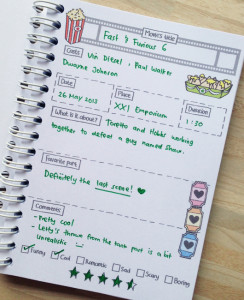 Movie's title
Fast & Furious 6
Casts
Vin Diesel, Paul Walker
Dwayne Johnson
Date
Place
Duration
26 May 2013
XXI Emporium
1:30
What is it about?
Toretto and Hobbs working
together to defeat a guy named Shaw.
Favorite part
Definitely the last scene!
Comments
- Pretty cool!
- Letty's thrown from the tank part is a bit
unrealistic
Funny
Cool
Romantic
Sad
Scary
Boring